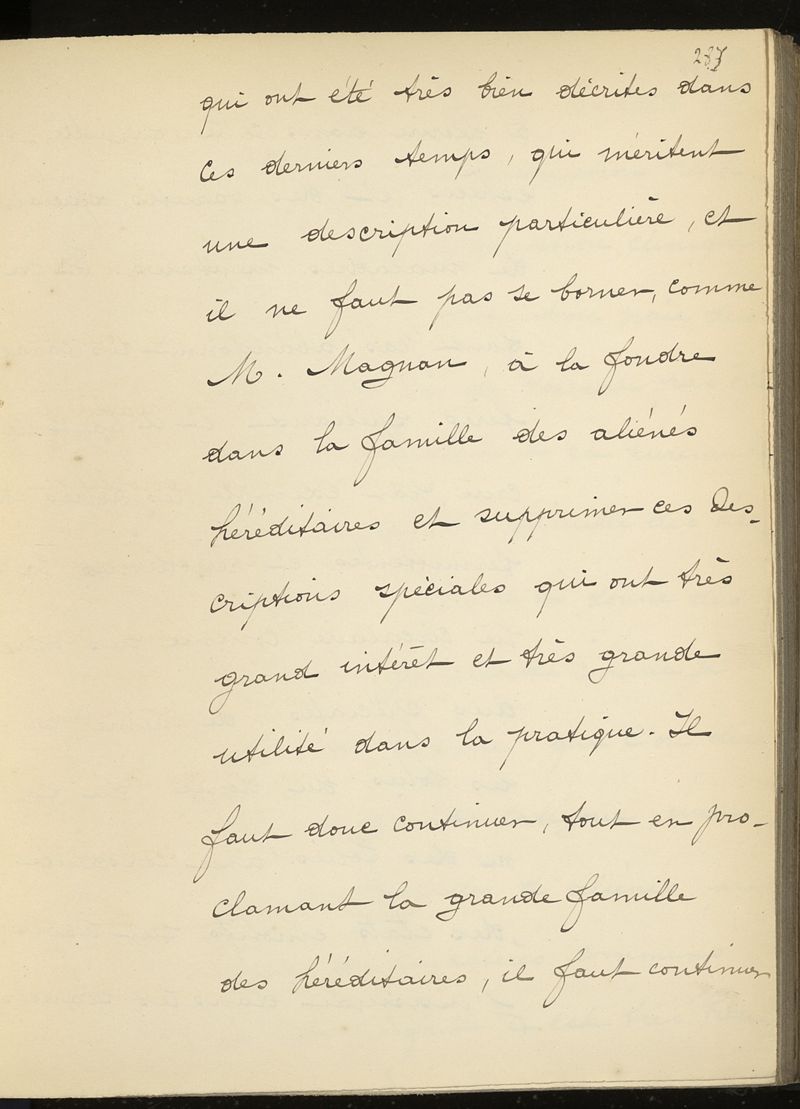 287
qui ont été très bien décrites dans
ces derniers temps, qui méritent
une description particulière, et
il ne faut pas se borner, comme
M. Magnan, à la fondre
dans la famille des aliénés
héréditaires et supprimer ces des-
criptions spéciales qui ont très
grand intérêt et très grande
utilité dans la pratique. Il
faut donc continuer, tout en pro-
clamant la grande famille
des héréditaires, il faut continuer